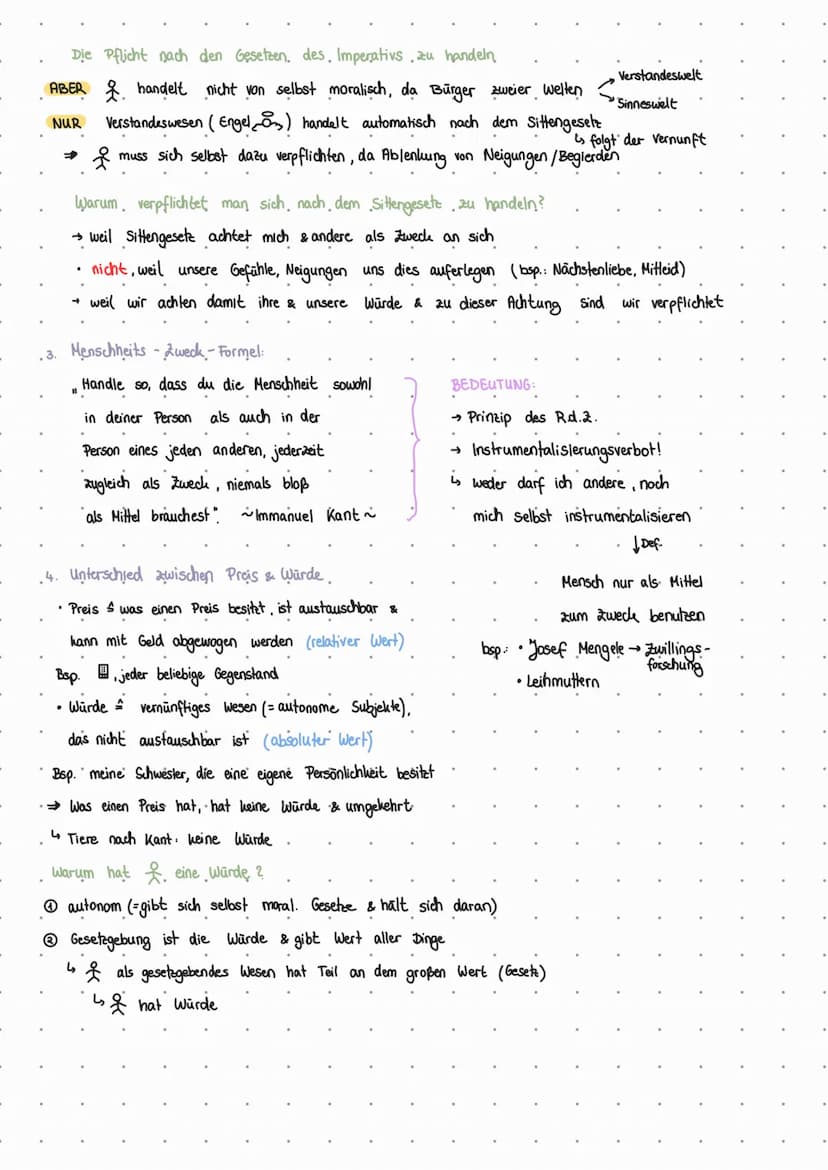 Die Pflicht nach den Gesetzen des Imperativs zu handeln
ABER handelt nicht von selbst moralisch, da Bürger zweier Welten
Verstandeswelt
Sinneswelt
NUR Verstandeswesen (Engel) handelt automatisch nach dem Sittengesetz
↳ folgt der Vernunft
⇒ muss sich selbst dazu verpflichten, da Ablenkung von Neigungen/Begierden
Warum verpflichtet man sich nach dem Sittengesetz zu handeln?
→ weil Sittengesetz achtet mich & andere als Zweck an sich
• nicht, weil unsere Gefühle, Neigungen uns dies auferlegen (bsp.: Nächstenliebe, Mitleid)
→ weil wir achten damit ihre & unsere Würde & zu dieser Achtung sind wir verpflichtet
3. Menschheits-Zweck-Formel:
„Handle so, dass du die Menschheit sowohl
in deiner Person als auch in der
Person eines jeden anderen, jederzeit
zugleich als Zweck, niemals bloß
als Mittel brauchest". ~Immanuel Kant~
BEDEUTUNG:
→ Prinzip des R.d.Z.
→ Instrumentalisierungsverbot!
↳ weder darf ich andere, noch
mich selbst instrumentalisieren
↓Def.
Mensch nur als Mittel
zum Zweck benutzen
bsp.: • Josef Mengele → Zwillings-
forschung
• Leihmuttern
4. Unterschied zwischen Preis & Würde
• Preis ≙ was einen Preis besitzt, ist austauschbar &
kann mit Geld abgewogen werden (relativer Wert)
Bsp. , jeder beliebige Gegenstand
• Würde ≙ vernünftiges Wesen (= autonome Subjekte),
das nicht austauschbar ist (absoluter Wert)
Bsp. meine Schwester, die eine eigene Persönlichkeit besitzt
⇒ Was einen Preis hat, hat keine Würde & umgekehrt
↳ Tiere nach Kant: keine Würde
Warum hat eine Würde?
① autonom (=gibt sich selbst moral. Gesetze & hält sich daran)
② Gesetzgebung ist die Würde & gibt Wert aller Dinge
↳ als gesetzgebendes Wesen hat Teil an dem großen Wert (Gesetz)
↳ hat Würde